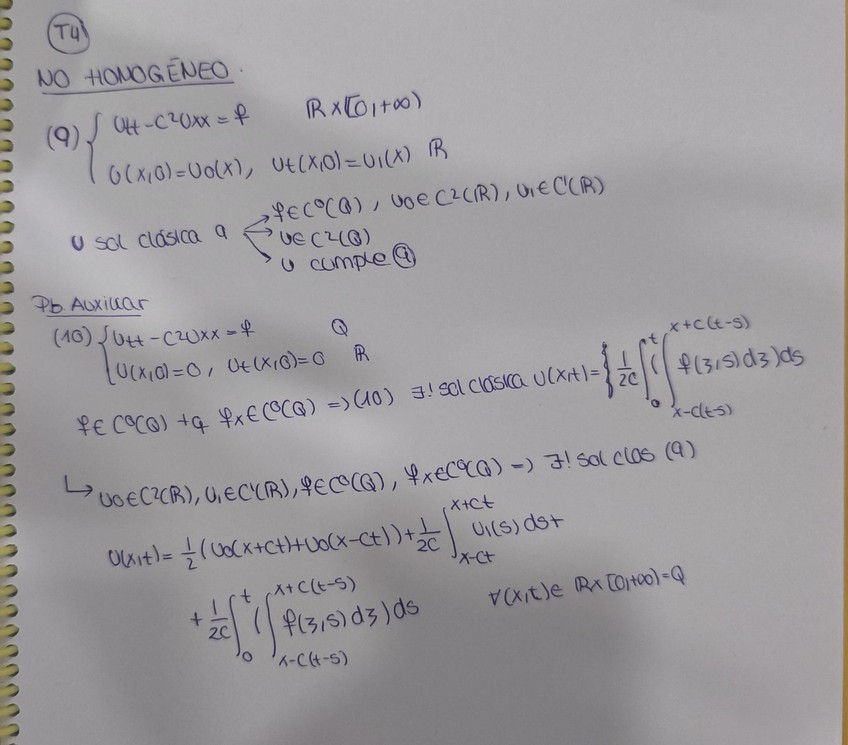 T4
NO HOMOGÉNEO.
(9) { Utt - C²Uxx = f   ℝ x [0, +∞)
U(x,0) = U0(x), Ut(x,0) = U1(x)   ℝ
U sol clásica 9 → f ∈ C⁰(Q), U0 ∈ C²(ℝ), U1 ∈ C¹(ℝ)
→ U ∈ C²(Q)
→ U cumple (9)
Pb. Auxiliar
(10) { Utt - C²Uxx = f   Q
U(x,0) = 0, Ut(x,0) = 0   ℝ
f ∈ C⁰(Q) + q fx ∈ C⁰(Q) => (10) ∃! sol clásica U(x,t) = { 1/2C ∫_0^t ( ∫_{x-C(t-s)}^{x+C(t-s)} f(ξ,s) dξ ) ds
↳ U0 ∈ C²(ℝ), U1 ∈ C¹(ℝ), f ∈ C⁰(Q), fx ∈ C⁰(Q) => ∃! sol clas (9)
U(x,t) = 1/2 (U0(x+ct) + U0(x-ct)) + 1/2C ∫_{x-ct}^{x+ct} U1(s) ds +
+ 1/2C ∫_0^t ( ∫_{x-C(t-s)}^{x+C(t-s)} f(ξ,s) dξ ) ds   ∀(x,t) ∈ ℝ x [0,+∞) = Q